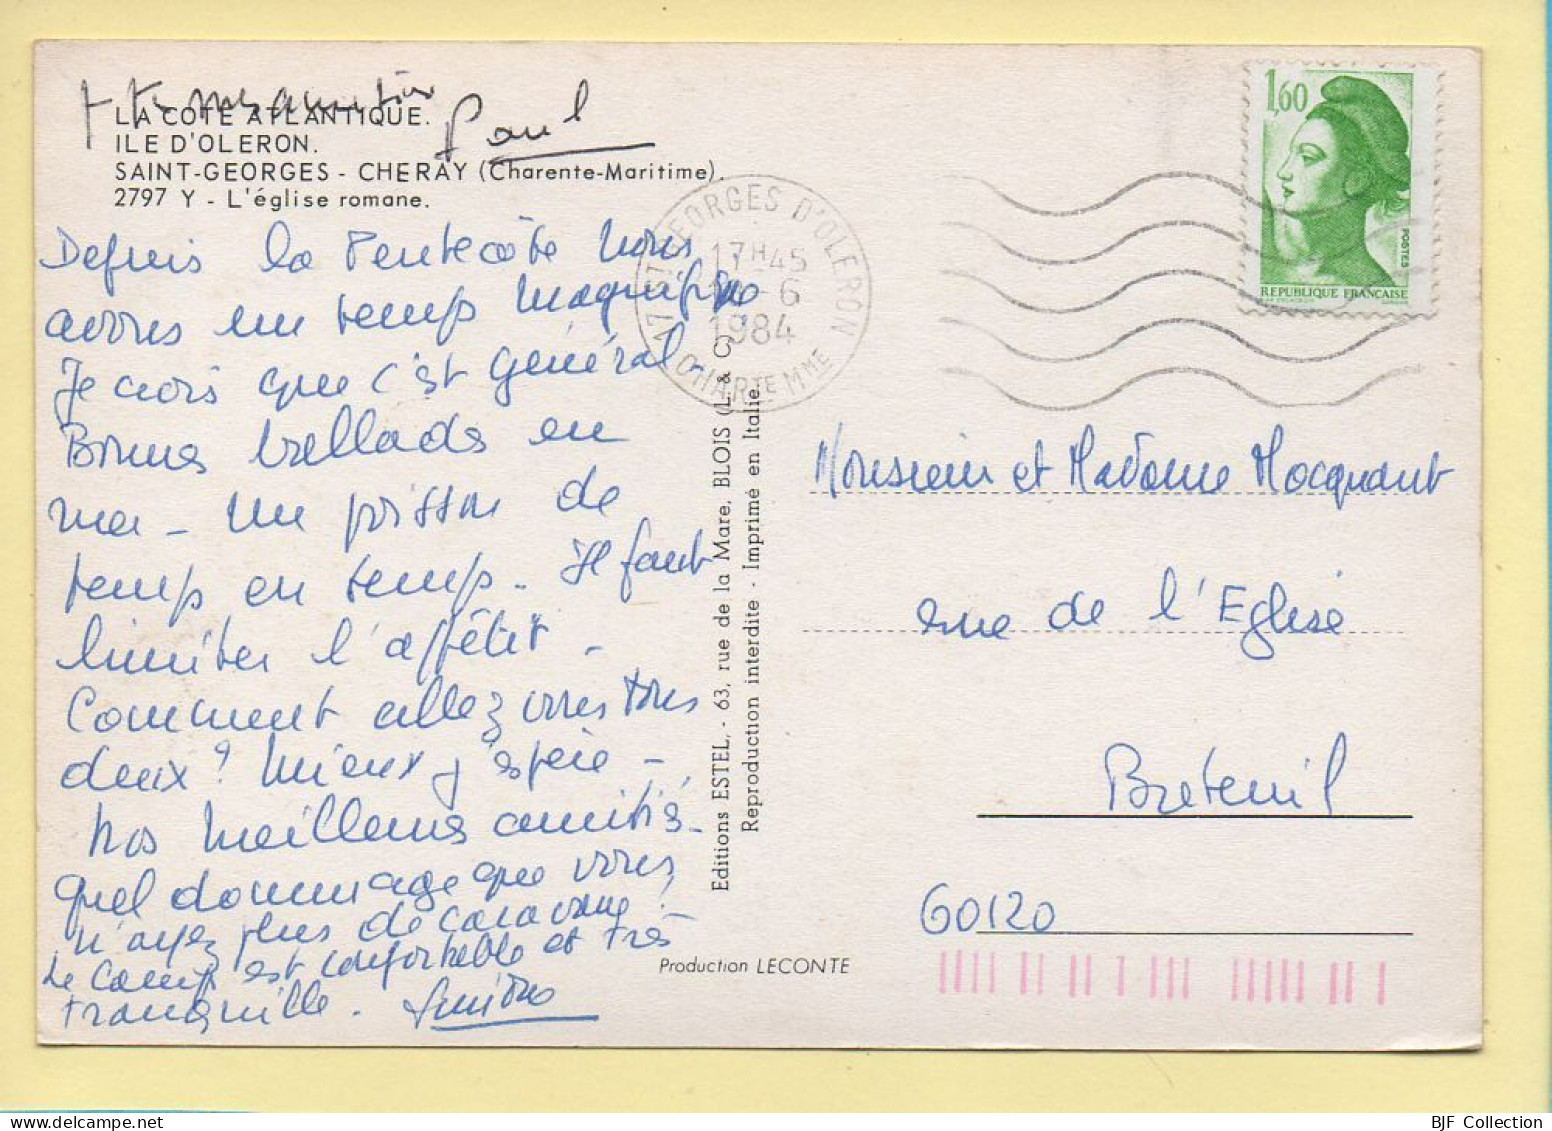 Paul
LA COTE ATLANTIQUE.
ILE D'OLERON.
SAINT-GEORGES - CHERAY (Charente-Maritime).
2797 Y - L'église romane.
Depuis la Pentecôte nous
avons un temps magnifique
Je crois que c'est général.
Bonnes ballades en
mer - un poisson de
temps en temps. Il faut
limiter l'appétit.
Comment allez vous tous
deux? Mieux j'espère -
Nos meilleures amitiés.
quel dommage que vous
n'ayez plus de caravane!
Le camp est confortable et très
tranquille.
17 ST GEORGES D'OLERON
17H45
-6
1984
CHARTE MME
1,60
POSTES
REPUBLIQUE FRANCAISE
Editions ESTEL, - 63, rue de la Mare, BLOIS (L. & C
Reproduction interdite - Imprimé en Italie
Production LECONTE
Monsieur et Madame Mocquant
rue de l'Eglise
Breteuil
60120
BJF Collection